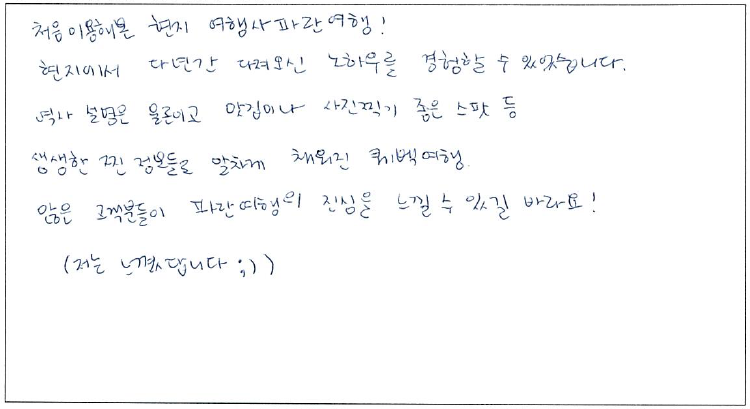 처음 이용해본 현지 여행사 파란여행!
현지에서 다년간 다져오신 노하우를 경험할 수 있었습니다.
역사 설명은 물론이고 맛집이나 사진찍기 좋은 스팟 등
생생한 찐 정보들로 알차게 채워진 퀘벡여행
많은 고객분들이 파란여행의 진심을 느낄 수 있길 바라요!
(저는 느꼈답니다 ;))